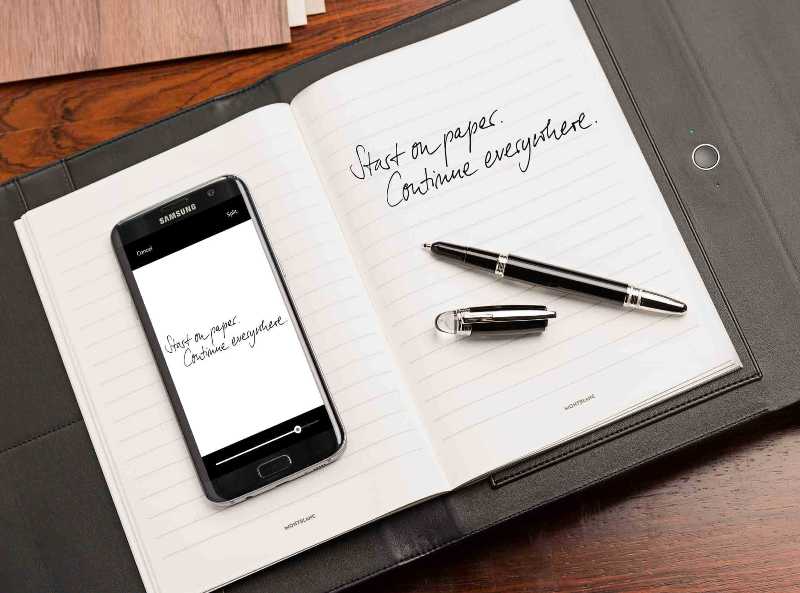 Start on paper.
Continue everywhere.
SAMSUNG
Cancel
Split
Start on paper.
Continue everywhere.
MONTBLANC
MONTBLANC